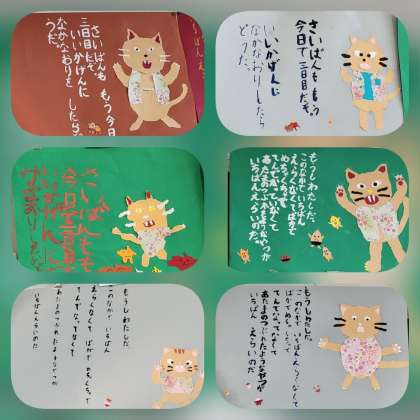 さいばんも もう 今日で
三日目だぞ。
いいかげんに
なかなおりを したら
どうだ。
さいばんも もう
今日で 三日目だぞ。
いいかげんに
なかなおりしたら
どうだ。
さいばんも
今日で三日目
いいかげんに
なかなおり
もうしわたしだ。
このなかで いちばん
えらくなくて ばかで
めちゃくちゃで
てんでなっていなくて
あたまのつぶれたようなやつが
いちばんえらいのだ。
もうしわたしだ。
このなかで いちばん
えらくなくて ばかで めちゃくちゃで
てんでなってなくて
あたまのつぶれたようなやつが
いちばんえらいのだ
もうしわたしだ。
このなかで いちばん えらくなくて
ばかで めちゃくちゃで
てんでなってなくて
あたまのつぶれたようなやつが
いちばん えらいのだ。